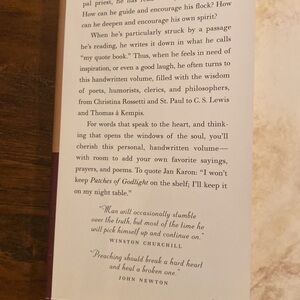 pal priest, he has
How can he guide and encourage his flock? How
can he deepen and encourage his own spirit?
When he's particularly struck by a passage
he's reading, he writes it down in what he calls
"my quote book." Thus, when he feels in need of
inspiration, or even a good laugh, he often turns to
this handwritten volume, filled with the wisdom
of poets, humorists, clerics, and philosophers,
from Christina Rossetti and St. Paul to C. S. Lewis
and Thomas à Kempis.
For words that speak to the heart, and think-
ing that opens the windows of the soul, you'll
cherish this personal, handwritten volume—
with room to add your own favorite sayings,
prayers, and poems. To quote Jan Karon: "I won't
keep Patches of Godlight on the shelf; I'll keep it
on my night table."
"Man will occasionally stumble
over the truth, but most of the time he
will pick himself up and continue on."
WINSTON CHURCHILL
"Preaching should break a hard heart
and heal a broken one."
JOHN NEWTON